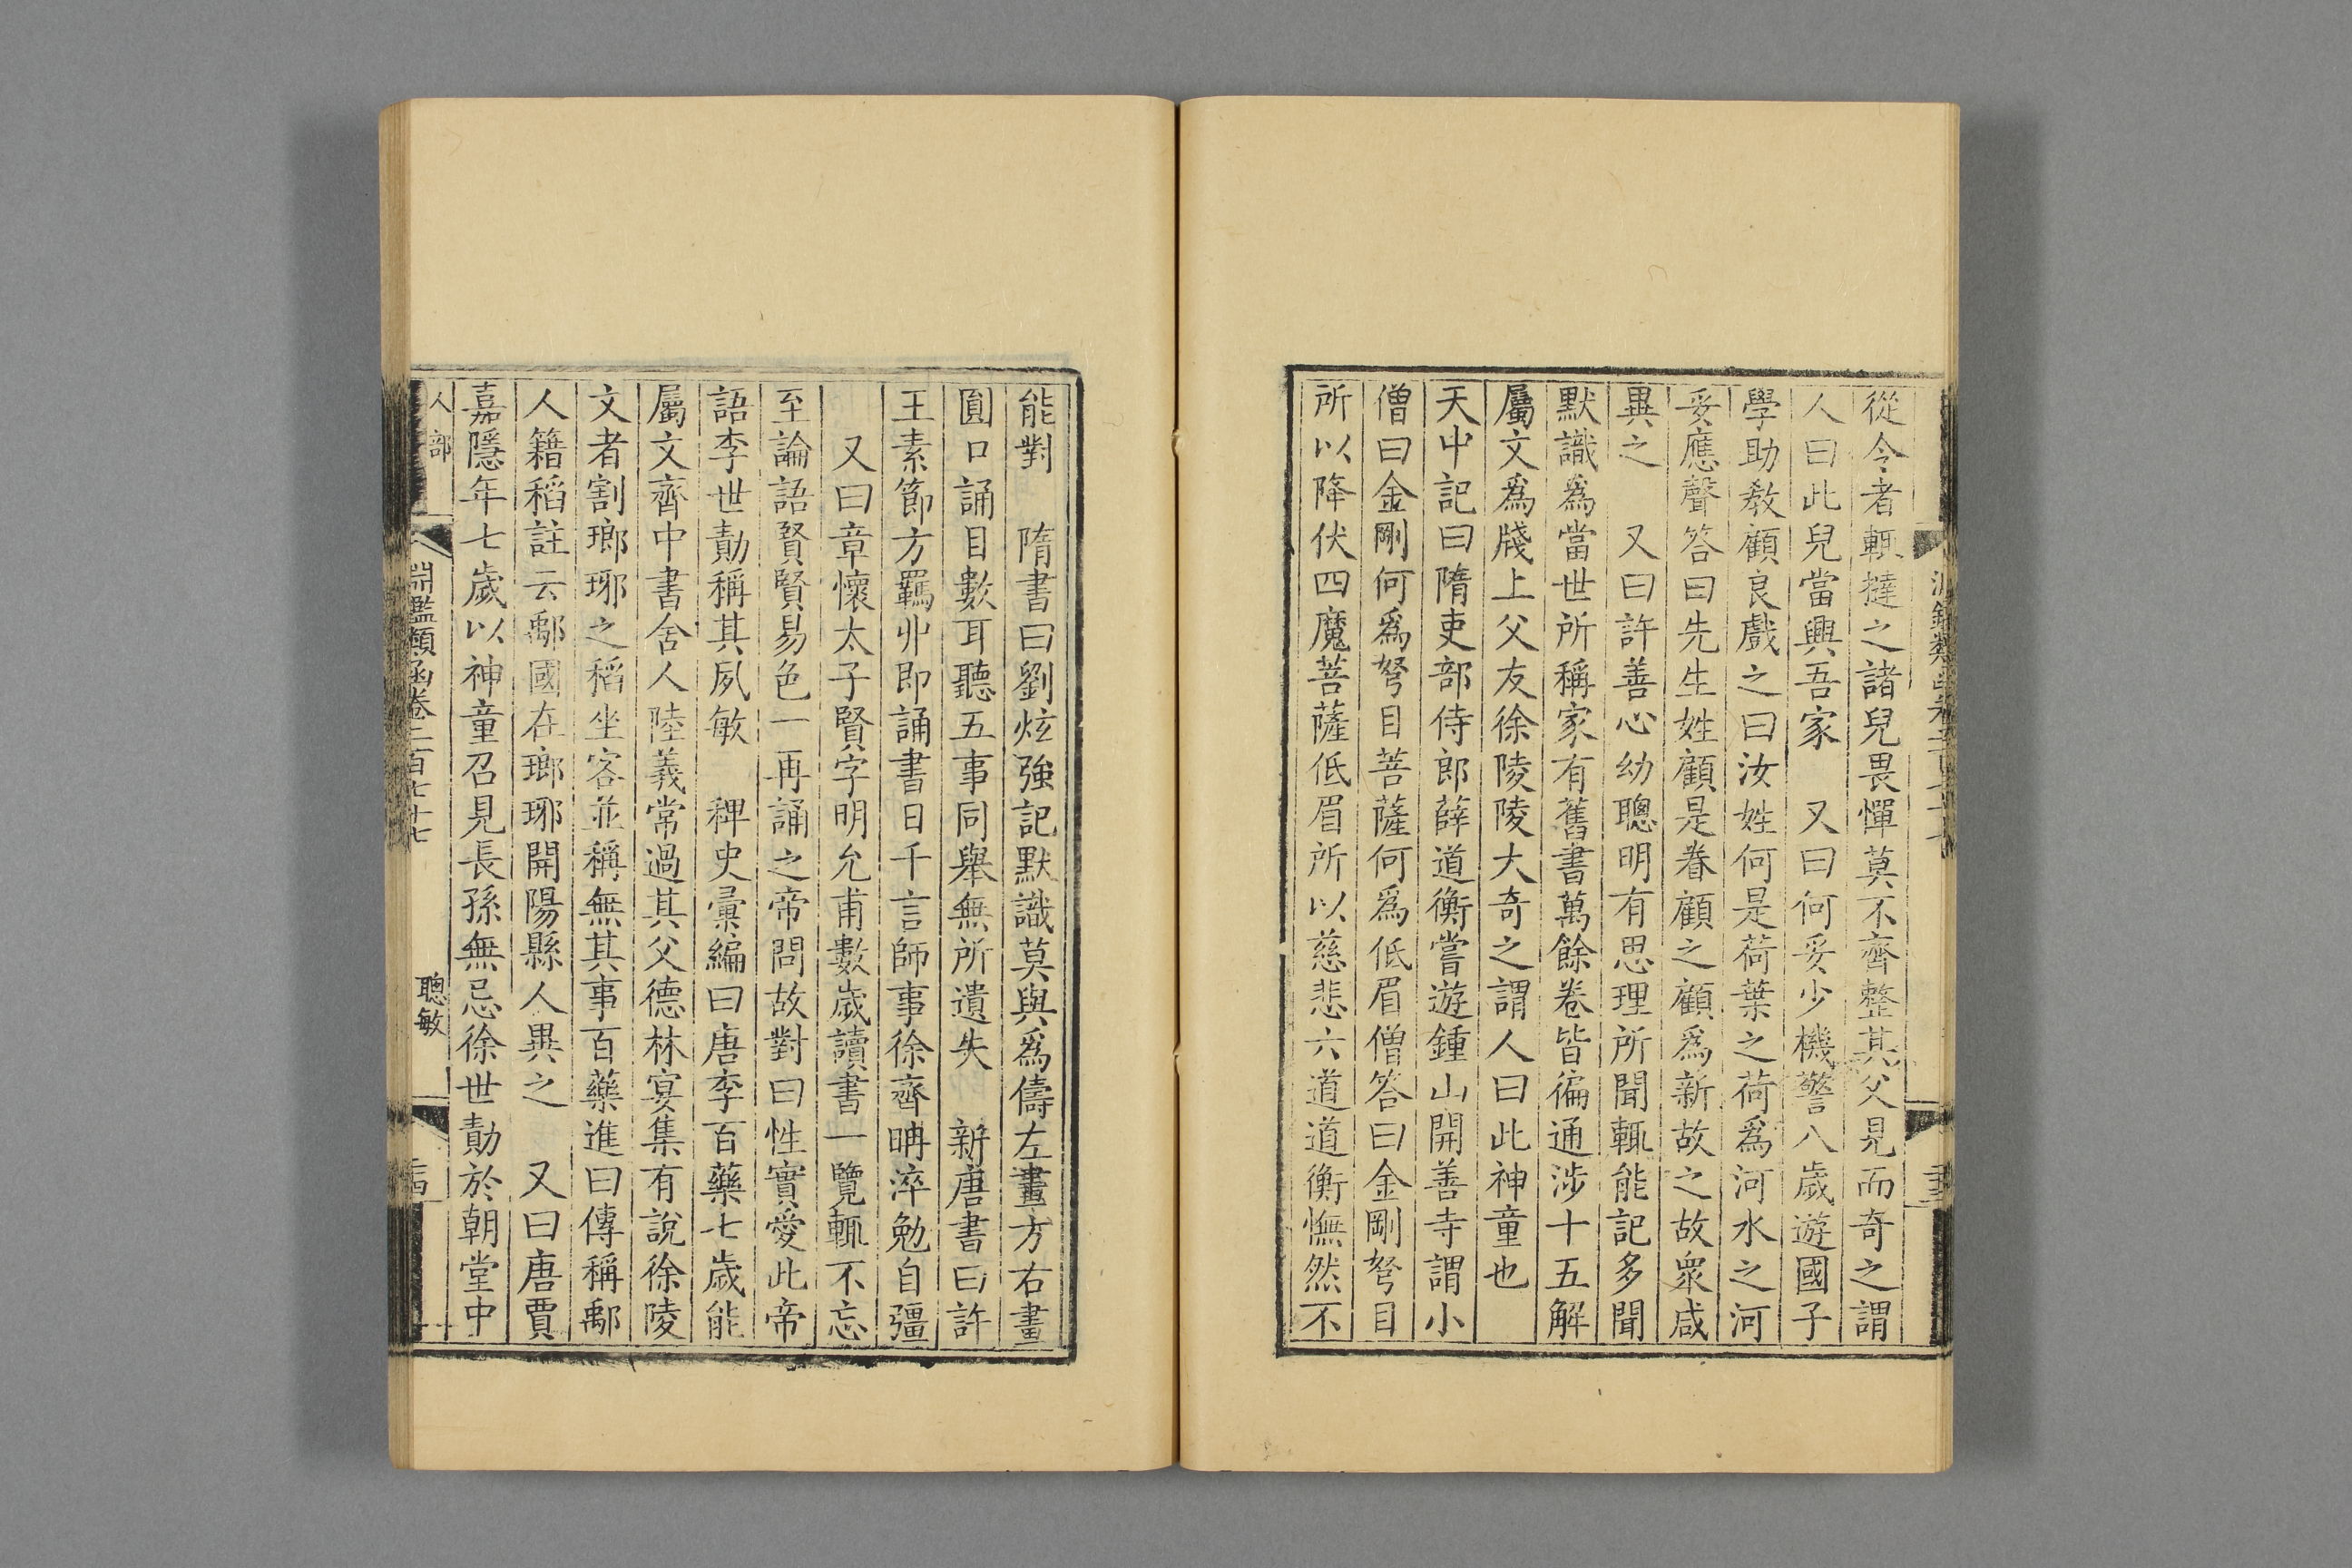 從令者輒撻之諸兒畏憚莫不齊整其父見而奇之謂
人曰此兒當興吾家　又曰何妥少機警八歲遊國子
學助教顧良戲之曰汝姓何是荷葉之荷爲河水之河
妥應聲答曰先生姓顧是眷顧之顧爲新故之故衆咸
異之　又曰許善心幼聰明有思理所聞輒能記多聞
默識爲當世所稱家有舊書萬餘卷皆徧通涉十五解
屬文爲牋上父友徐陵陵大奇之謂人曰此神童也
天中記曰隋吏部侍郎薛道衡嘗遊鍾山開善寺謂小
僧曰金剛何爲努目菩薩何爲低眉僧答曰金剛努目
所以降伏四魔菩薩低眉所以慈悲六道道衡憮然不
能對　隋書曰劉炫強記默識莫與爲儔左畫方右畫
圓口誦目數耳聽五事同舉無所遺失　新唐書曰許
王素節方羈丱即誦書日千言師事徐齊聃淬勉自彊
又曰章懷太子賢字明允甫數歲讀書一覽輒不忘
至論語賢賢易色一再誦之帝問故對曰性實愛此帝
語李世勣稱其夙敏　稗史彙編曰唐李百藥七歲能
屬文齊中書舍人陸義常過其父德林宴集有說徐陵
文者割瑯琊之稻坐客並稱無其事百藥進曰傳稱鄅
人籍稻註云鄅國在瑯琊開陽縣人異之　又曰唐賈
嘉隱年七歲以神童召見長孫無忌徐世勣於朝堂中
人部
淵鑑類函卷二百七十七
聰敏